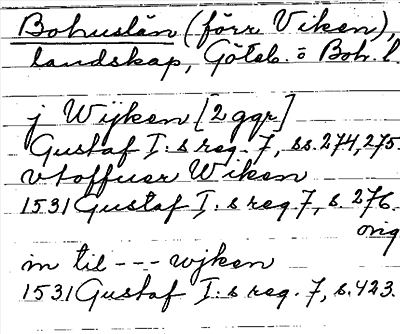 Bohuslän (förr Viken),
landskap, Göteb. o Boh. l.
j Wijken [2 ggr]
Gustaf I:s reg. 7, ss. 274, 275.
vtoffuer Wiken
1531 Gustaf I:s reg. 7, s. 276.
orig.
in til --- wjken
1531 Gustaf I:s reg. 7, s. 423.